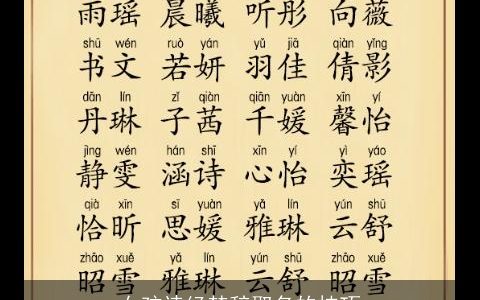 雨瑶 晨曦 听彤 向薇
shū wén ruò yán yǔ jiā qiàn yǐng
书文 若妍 羽佳 倩影
dān lín zǐ qiàn qiān yuàn xīn yí
丹琳 子茜 千媛 馨怡
jìng wén hán shī xīn yí yì yáo
静雯 涵诗 心怡 奕瑶
qià xīn sī yuàn yǎ lín yún shū
恰昕 思媛 雅琳 云舒
zhāo xuě yǎ lín yún shū zhāo xuě
昭雪 雅琳 云舒 昭雪
女孩诗经楚辞取名的技巧